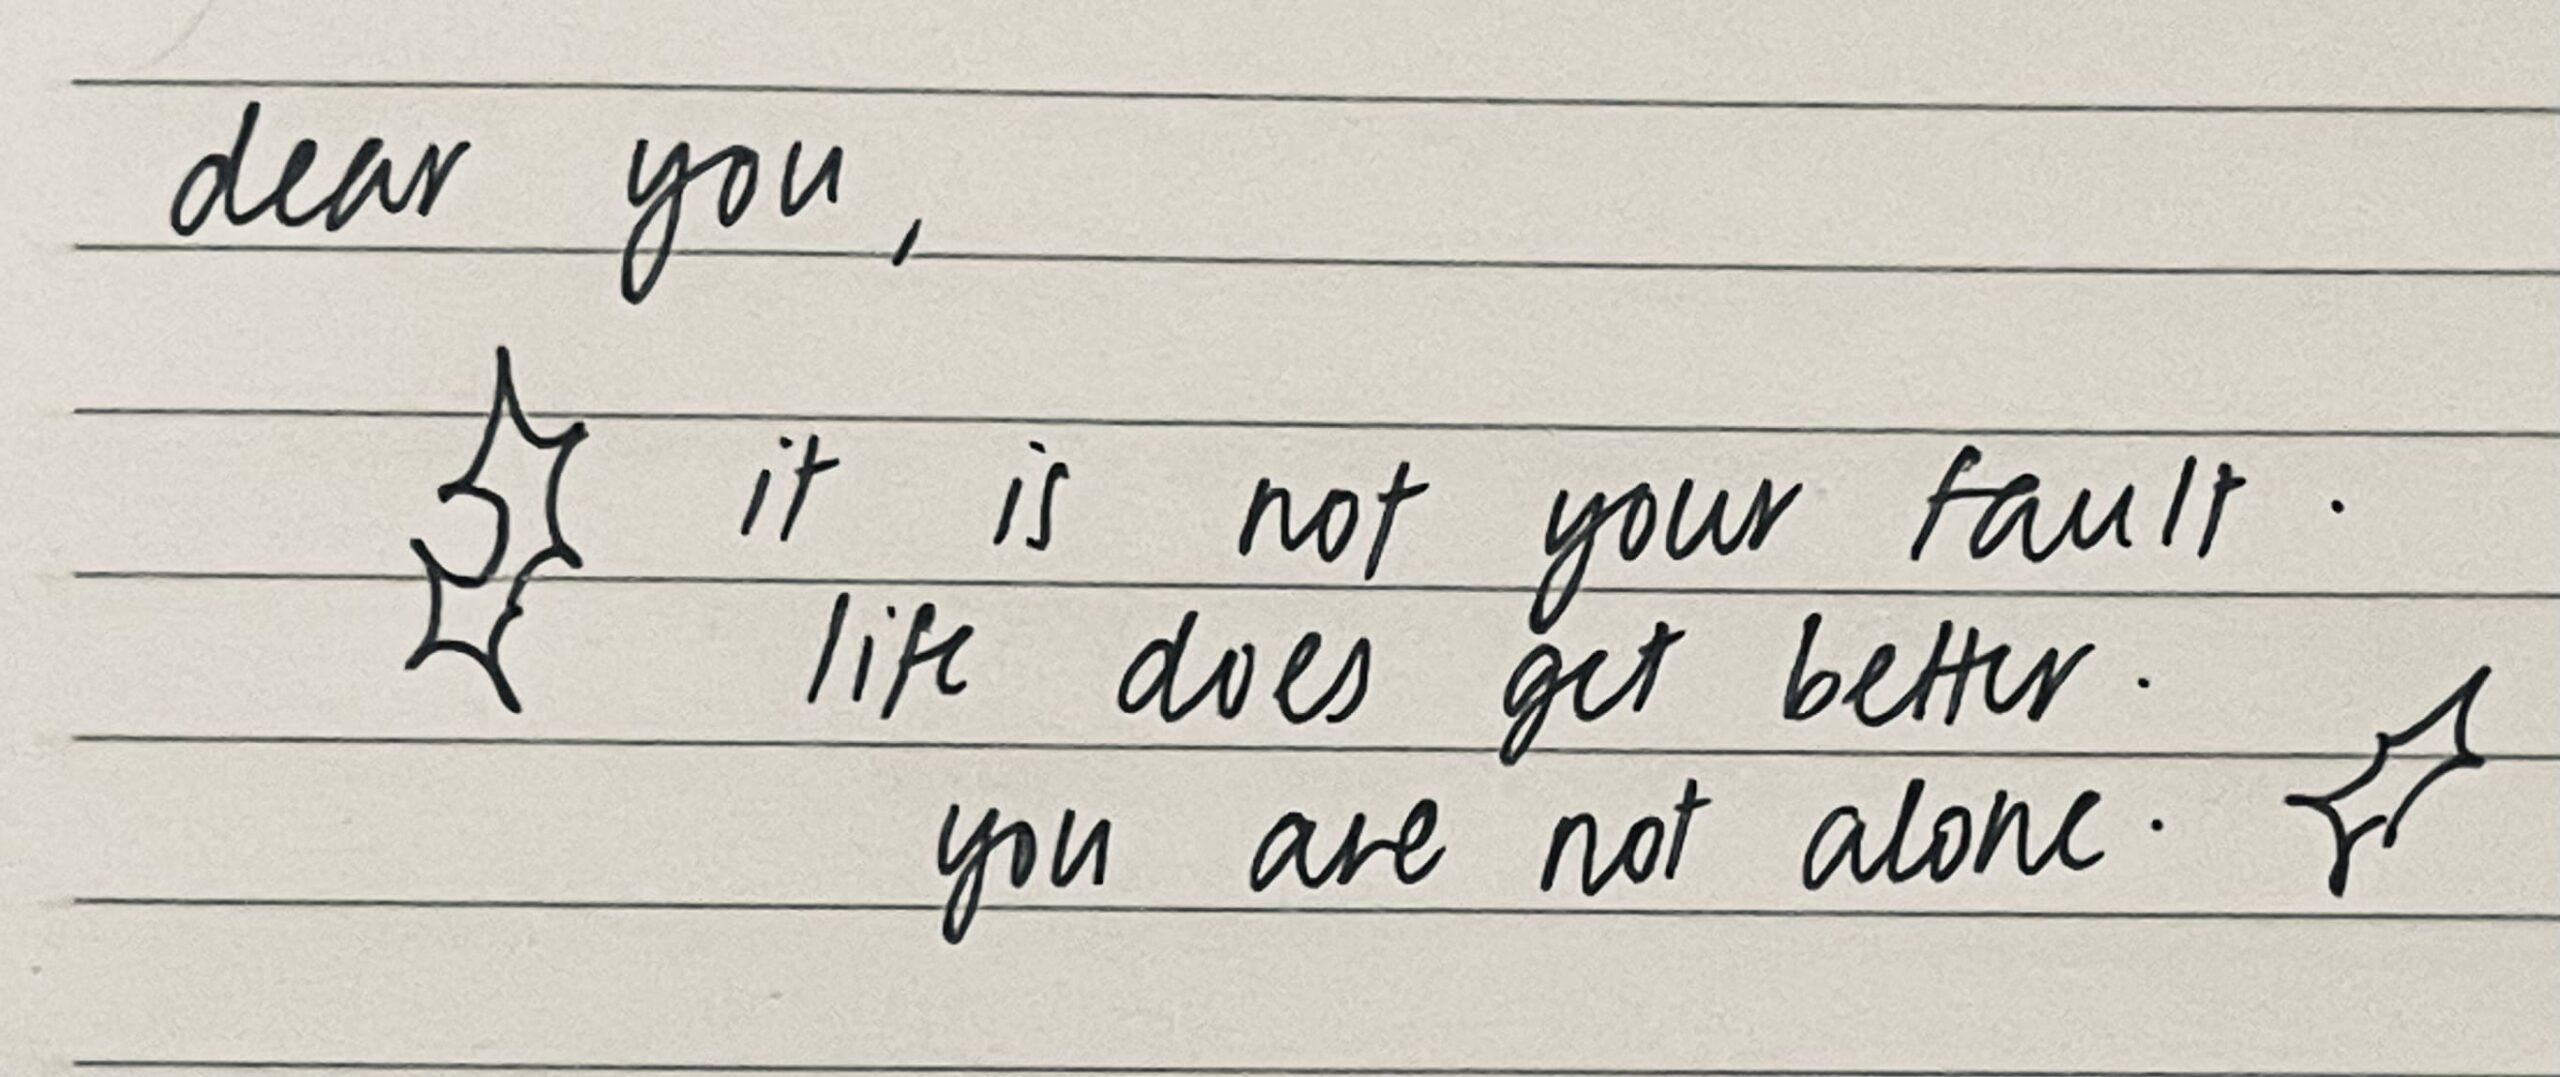 dear you,
it is not your fault.
life does get better.
you are not alone.